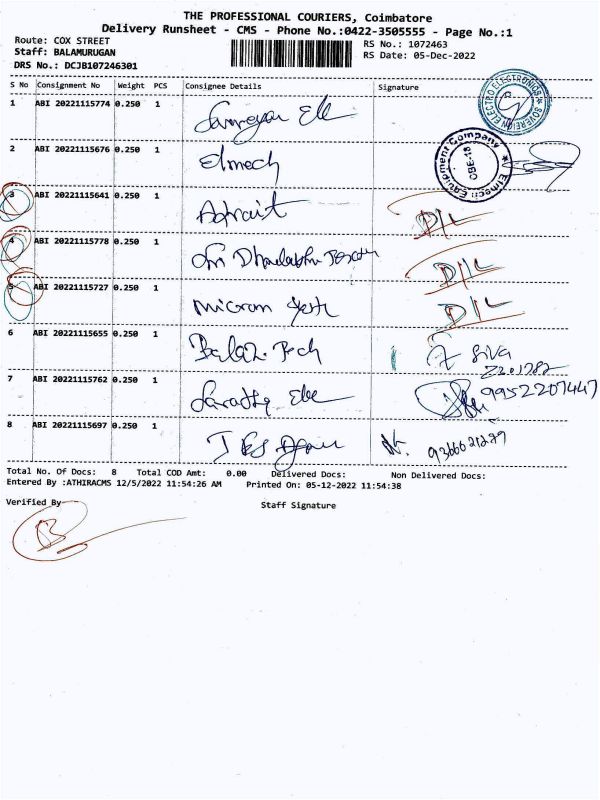 THE PROFESSIONAL COURIERS, Coimbatore
Delivery Runsheet - CMS - Phone No.:0422-3505555 - Page No.:1
Route: COX STREET
RS No.: 1072463
Staff: BALAMURUGAN
RS Date: 05-Dec-2022
DRS No.: DCJB107246301
S No Consignment No Weight PCS Consignee Details Signature
1 ABI 20221115774 0.250 1
SOVEREIGN ELECTRO ELECTRONICS
2 ABI 20221115676 0.250 1 Elmech
Elmech Equipment Company CBE-18
3 ABI 20221115641 0.250 1 D/L
4 ABI 20221115778 0.250 1 Sri D/L
5 ABI 20221115727 0.250 1 Micron D/L
6 ABI 20221115655 0.250 1 Balaz. Tech Siva
7 ABI 20221115762 0.250 1 Ele 9952207447
8 ABI 20221115697 0.250 1
Total No. Of Docs: 8 Total COD Amt: 0.00 Delivered Docs: Non Delivered Docs:
Entered By :ATHIRACMS 12/5/2022 11:54:26 AM Printed On: 05-12-2022 11:54:38
Verified By
Staff Signature